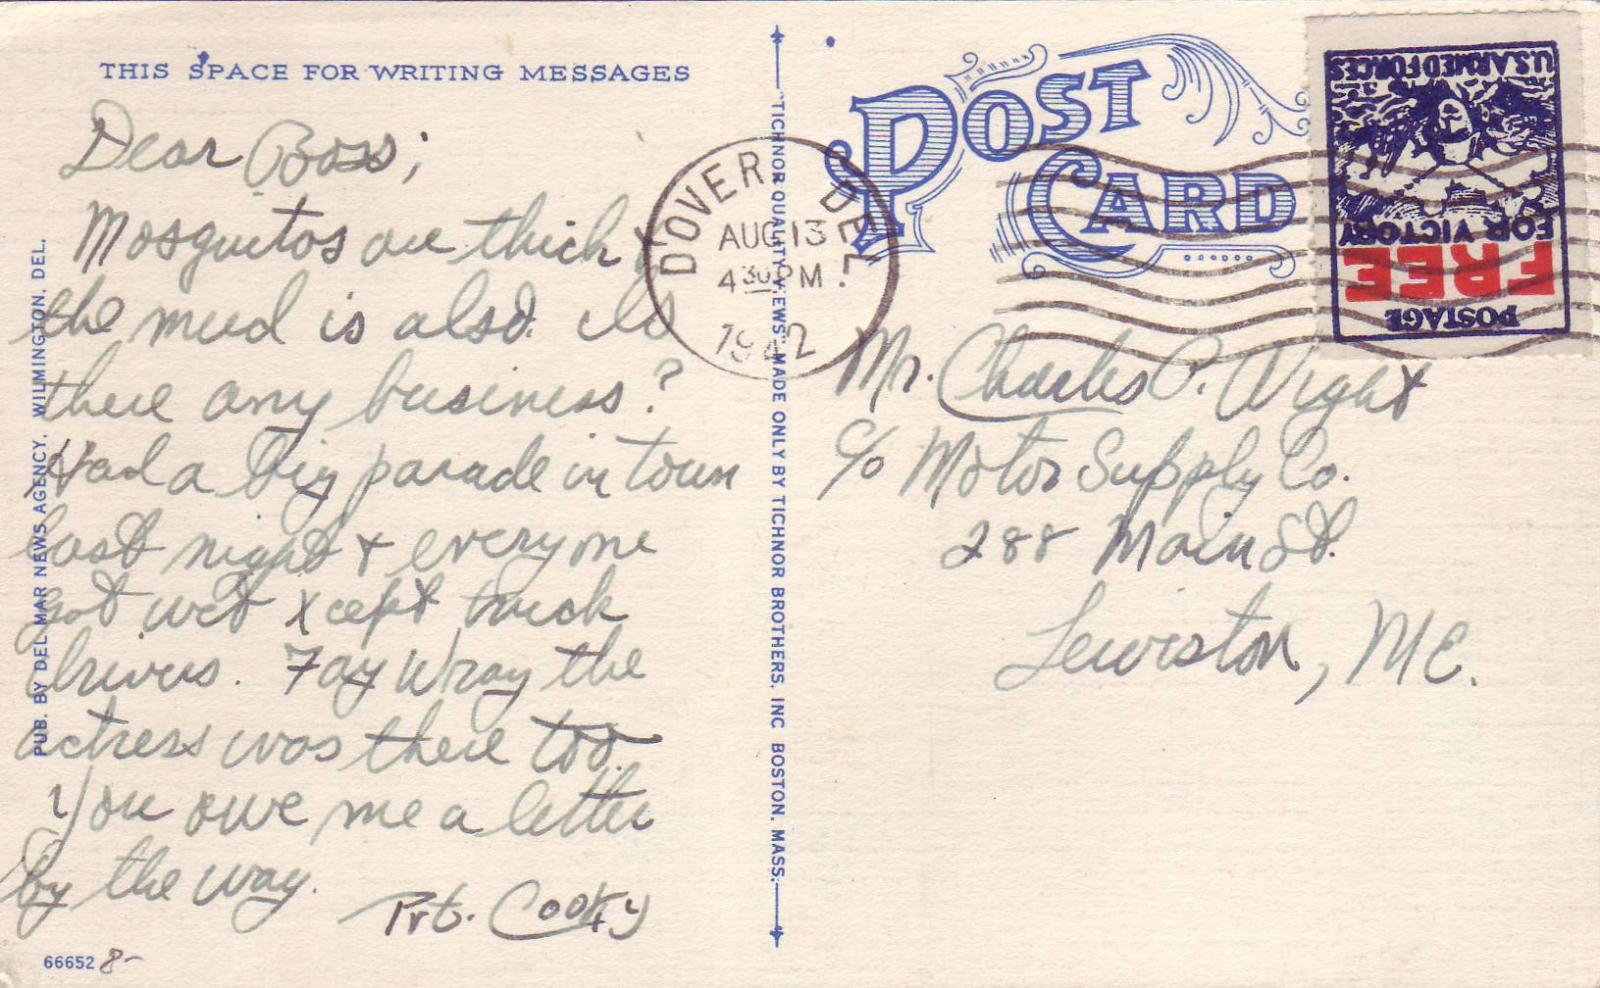 THIS SPACE FOR WRITING MESSAGES
Dear Boss;
Mosquitos are thick &
the mud is also. Is
there any business?
Had a big parade in town
last night + everyone
got wet xcept truck
drivers. Fay Wray the
actress was there too.
You owe me a letter
by the way.
Pvt. Cooky
66652 8-
PUB. BY DEL MAR NEWS AGENCY, WILMINGTON, DEL.
TICHNOR QUALITY VIEWS, MADE ONLY BY TICHNOR BROTHERS, INC BOSTON, MASS.
POST
CARD
DOVER DEL.
AUG 13
4 30 PM
1942
POSTAGE
FREE
FOR VICTORY
U.S. ARMED FORCES
Mr. Charles P. Wight
c/o Motor Supply Co.
288 Main St.
Lewiston, ME.